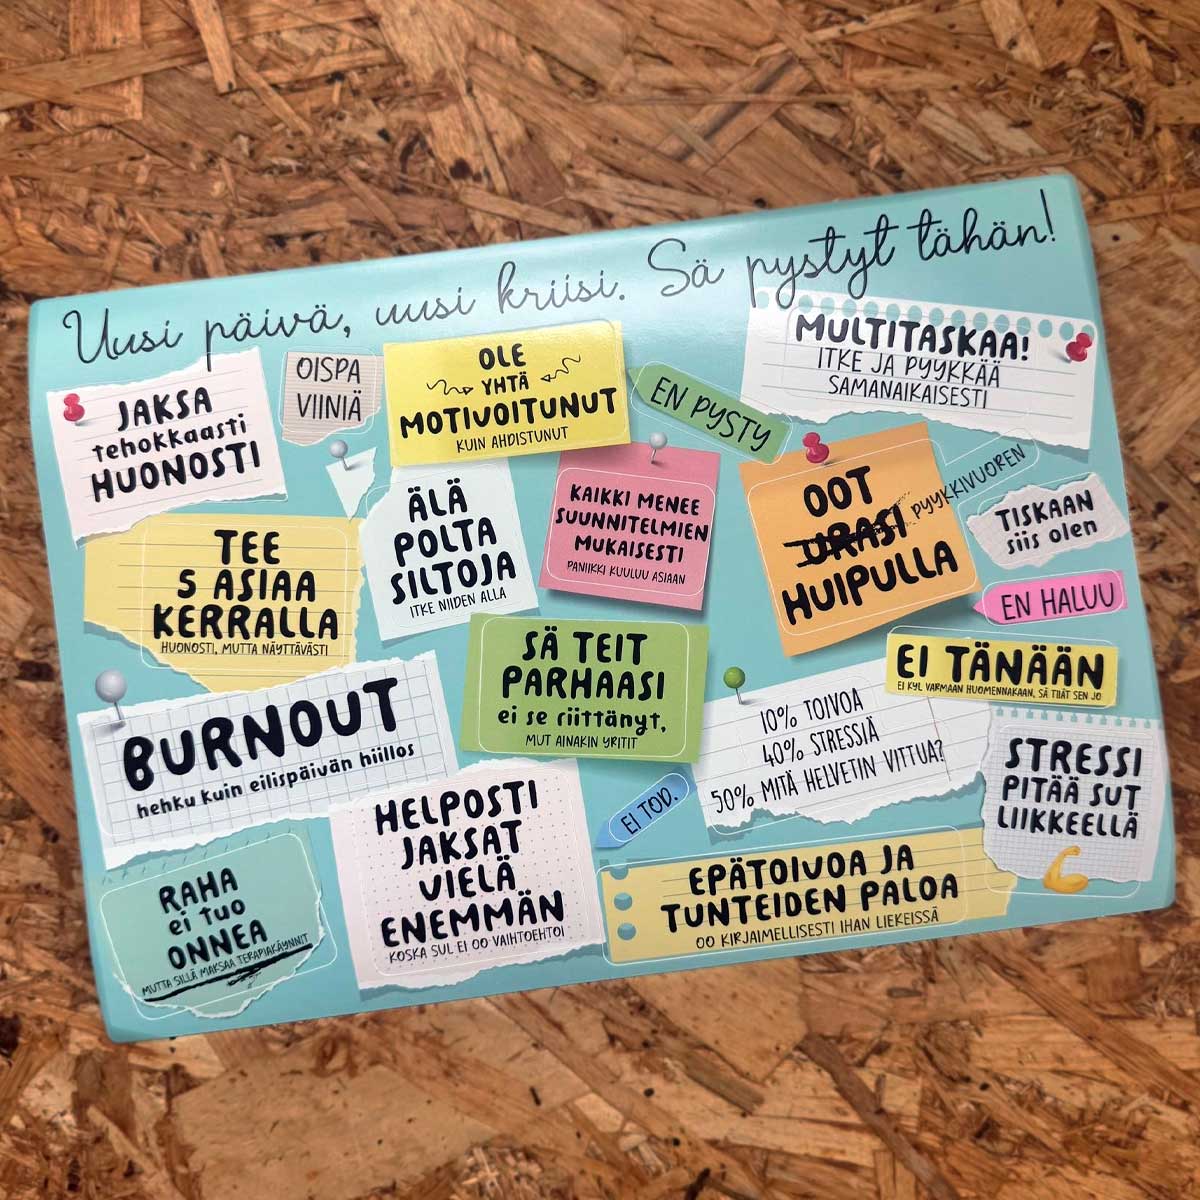 Uusi päivä, uusi kriisi. Sä pystyt tähän!
JAKSA
tehokkaasti
HUONOSTI
OISPA
VIINIÄ
OLE
YHTÄ
MOTIVOITUNUT
KUIN AHDISTUNUT
EN PYSTY
MULTITASKAA!
ITKE JA PYYKKÄÄ
SAMANAIKAISESTI
TEE
5 ASIAA
KERRALLA
HUONOSTI, MUTTA NÄYTTÄVÄSTI
ÄLÄ
POLTA
SILTOJA
ITKE NIIDEN ALLA
KAIKKI MENEE
SUUNNITELMIEN
MUKAISESTI
PANIIKKI KUULUU ASIAAN
OOT
URASI PYYKKIVUOREN
HUIPULLA
TISKAAN
siis olen
EN HALUU
BURNOUT
hehku kuin eilispäivän hiillos
SÄ TEIT
PARHAASI
ei se riittänyt,
MUT AINAKIN YRITIT
EI TÄNÄÄN
EI KYL VARMAAN HUOMENNAKAAN, SÄ TIIÄT SEN JO
10% TOIVOA
40% STRESSIÄ
50% MITÄ HELVETIN VITTUA?
STRESSI
PITÄÄ SUT
LIIKKEELLÄ
RAHA
ei tuo
ONNEA
MUTTA SILLÄ MAKSAA TERAPIAKÄYNNIT
HELPOSTI
JAKSAT
VIELÄ
ENEMMÄN
KOSKA SUL EI OO VAIHTOEHTOI
EI TOD.
EPÄTOIVOA JA
TUNTEIDEN PALOA
OO KIRJAIMELLISESTI IHAN LIEKEISSÄ